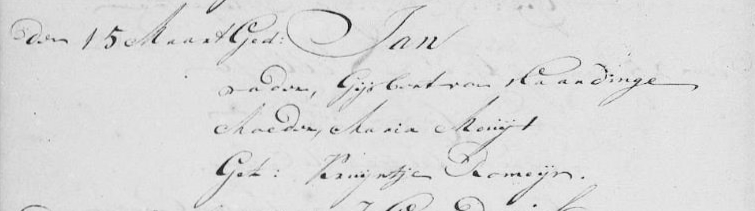 den 15 Maart Ged: Jan
vader, Gijsbert van Kaandinge
Moeder, Maria Meuijs
Get: Kruijntje Romeijn.